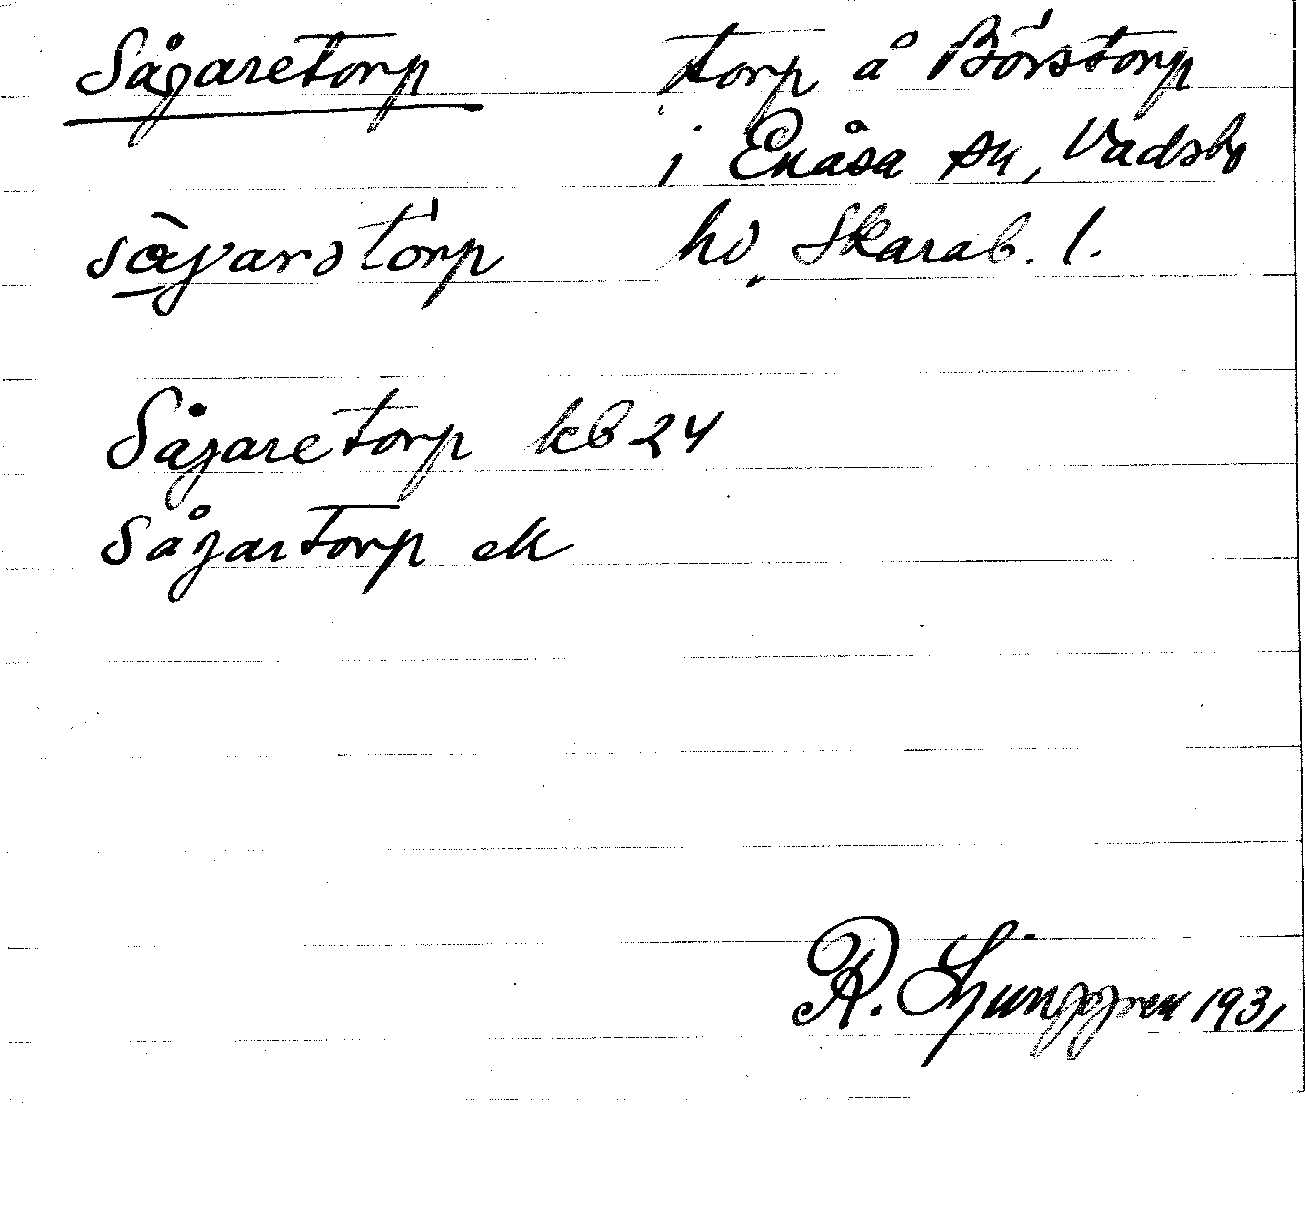 Sågaretorp
torp å Börstorp
i Enåsa sn, Vadsbo
hd, Skarab. l.
sàgarstórp
Sågaretorp kb 24
Sågartorp ek
R. Ljunggren 1931